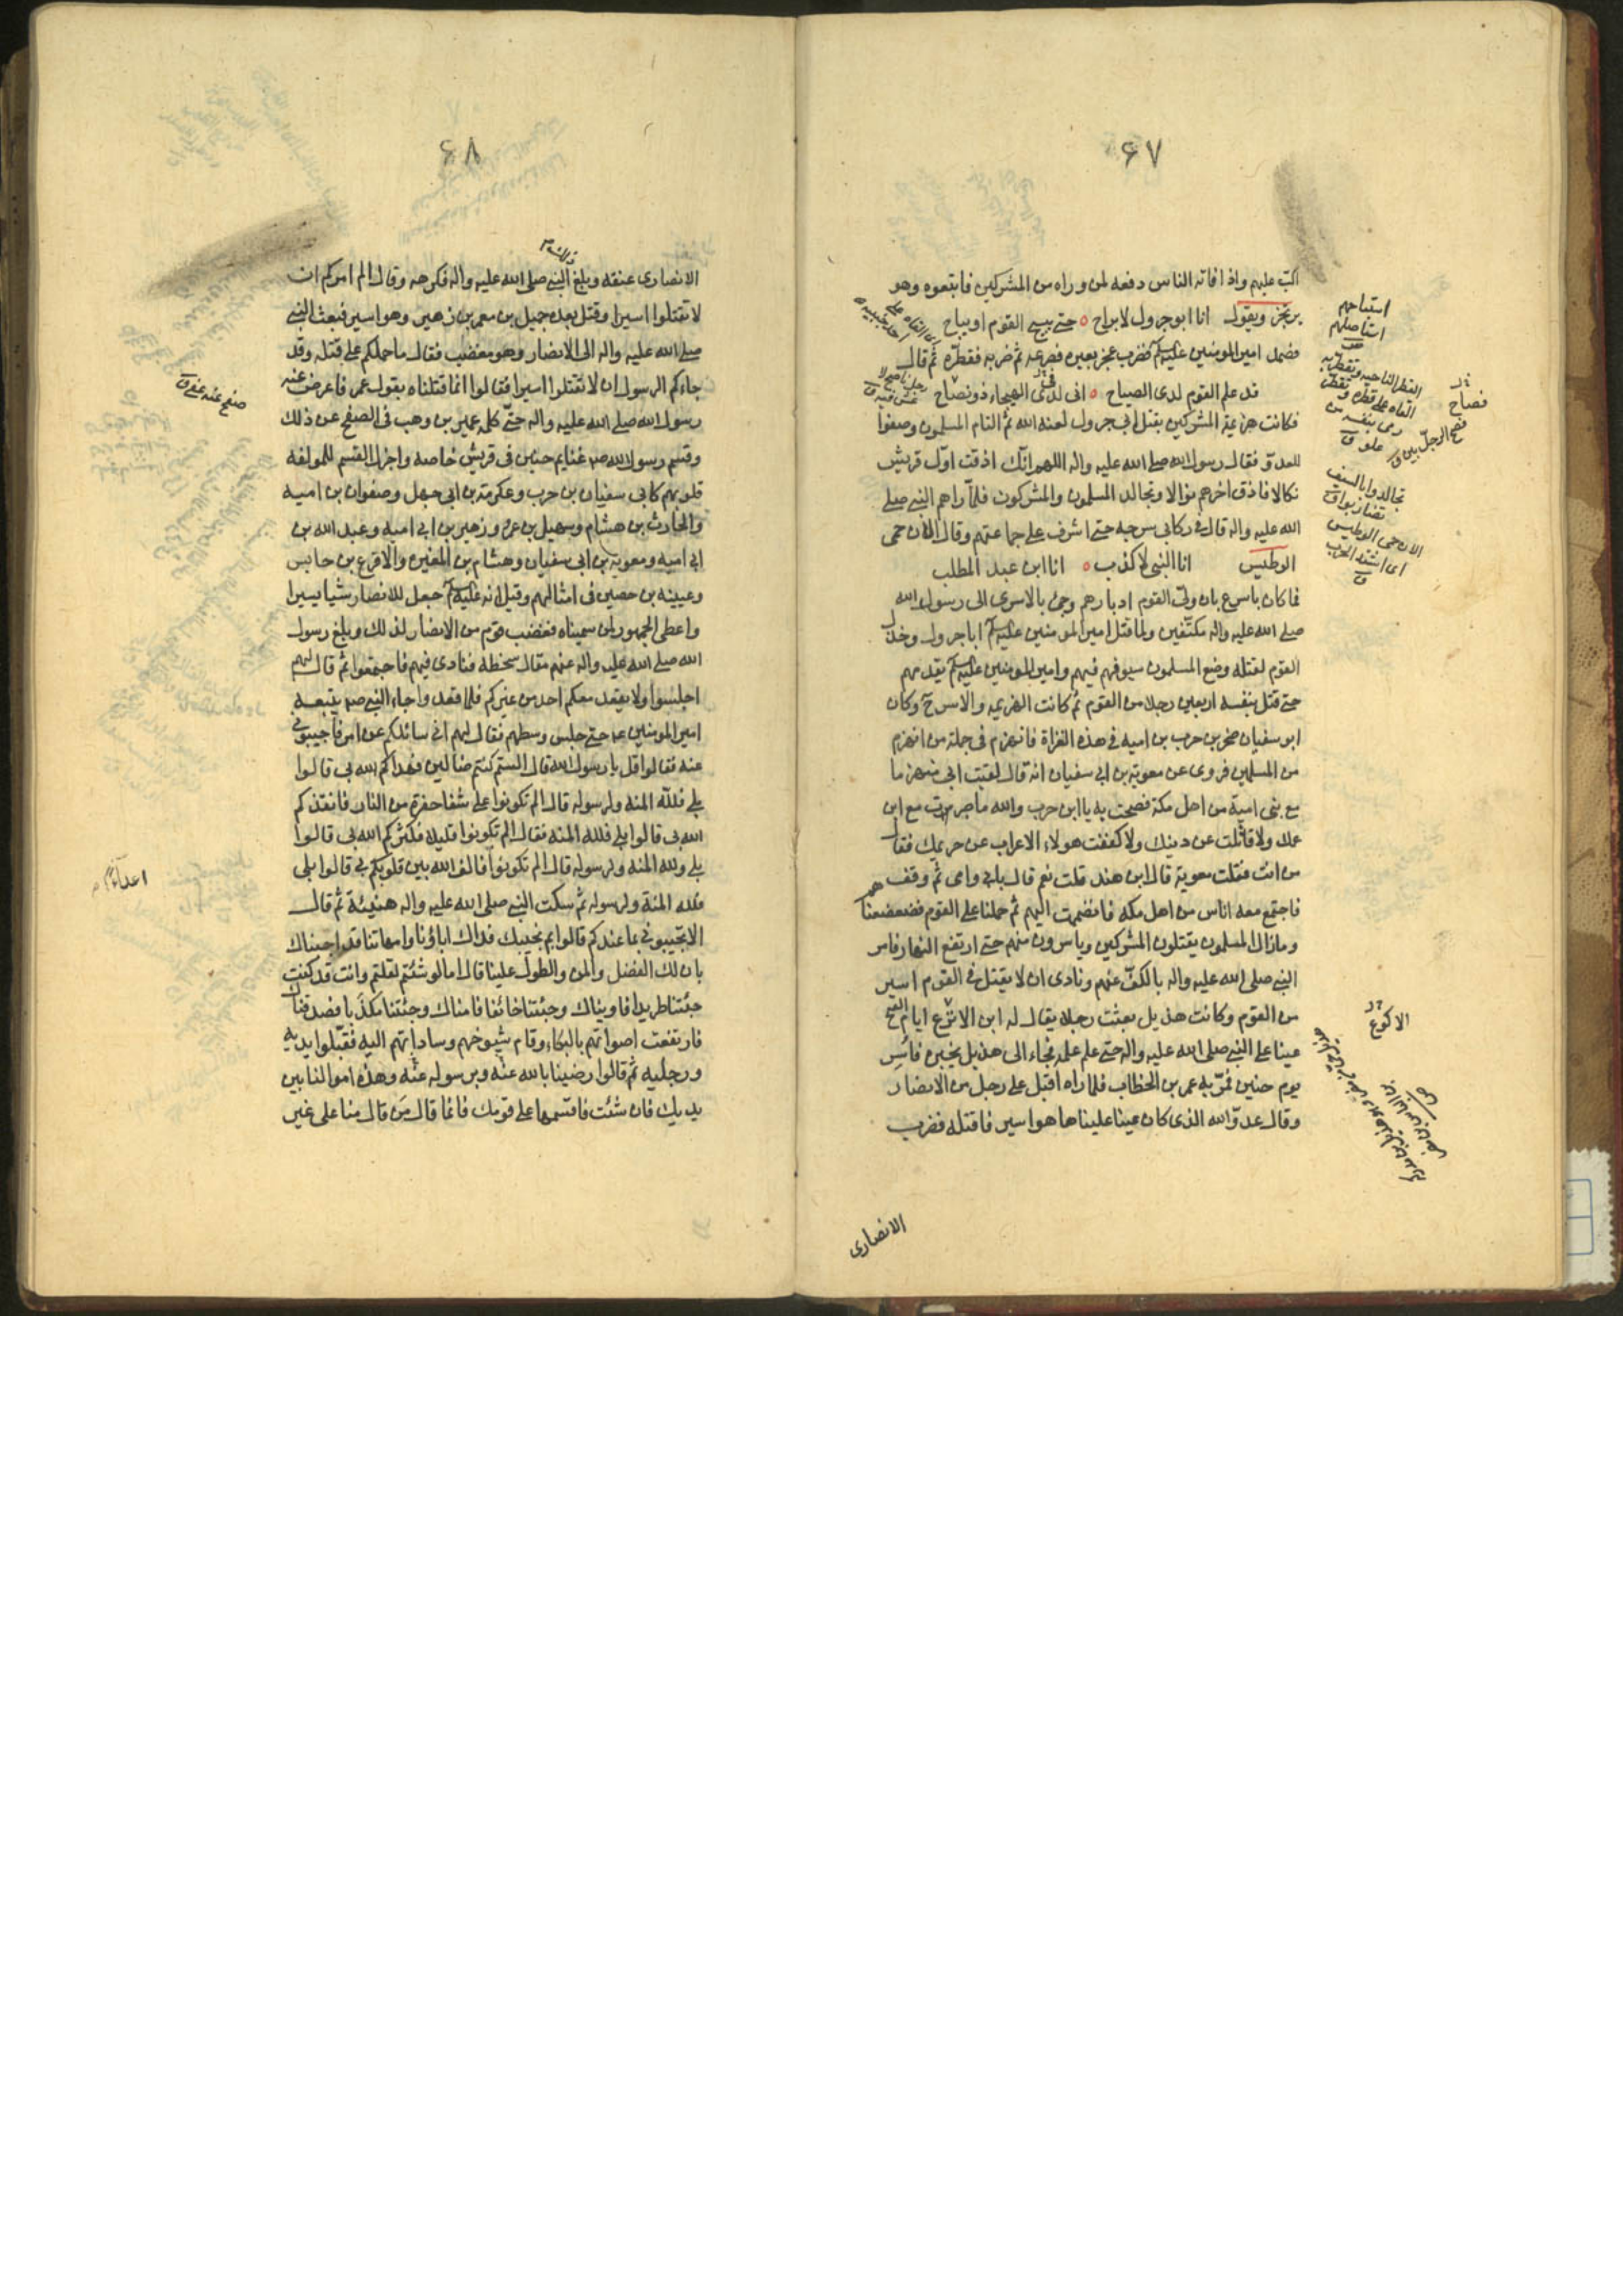 ٦٧
اكبّ عليهم واذا فاته الناس دفعه لمن وراه من المشركين فاتبعوه وهو
يرتجز ويقول انا ابو جرول لا براح حتى يبيح القوم او يباح
فصمد امير المومنين عليه السلم فضرب عجز بعيره فصرعه ثم ضربه فقطره ثم قال
قد علم القوم لدى الصباح انى لدى الهيجاء ذو نصاح
فكانت هزيمة المشركين بقتل ابى جرول لعنه الله ثم التام المسلمون وصفوا
للعدوّ فقال رسول الله صلى الله عليه واله اللهم انك اذقت اوّل قريش
نكالا فاذق اخرهم نوالا وتجالد المسلمون والمشركون فلما راهم النبى صلى
الله عليه واله قام فى ركابى سرجه حتى اشرف على جماعتهم وقال الان حمى
الوطيس انا النبى لا كذب انا ابن عبد المطلب
فما كان باسرع بان ولّى القوم ادبارهم وجئ بالاسرى الى رسول الله
صلى الله عليه واله مكتّفين ولما قتل امير المومنين عليه السلم ابا جرول وخذل
القوم لقتله وضع المسلمون سيوفهم فيهم وامير المومنين عليه السلم يقدمهم
حتى قتل بنفسه اربعين رجلا من القوم ثم كانت الهزيمه والاسر ح وكان
ابو سفيان صخر بن حرب بن اميه فى هذه الغزاة فانهزم فى جملة من انهزم
من المسلمين فروى عن معوية بن ابى سفيان انه قال لقيت ابى منهزما
مع بنى امية من اهل مكة فصحت به يا ابن حرب والله ما صبرت مع ابن
عمك ولا قاتلت عن دينك ولا كففت هولاء الاعراب عن حريمك فقال
من انت فقلت معوية قال ابن هند قلت نعم قال بابى وامى ثم وقف
فاجتمع معه اناس من اهل مكه فانضممت اليهم ثم حملنا على القوم فضعضعناهم
ومازال المسلمون يقتلون المشركين وياسرون منهم حتى ارتفع النهار فامر
النبى صلى الله عليه واله بالكفّ عنهم ونادى ان لا يقتل فى القوم اسير
من القوم وكانت هذيل بعثت رجلا يقال له ابن الانزع ايام الفتح
عينا على النبى صلى الله عليه واله حتى علم علمه فجاء الى هذيل بخبره فأسِر
يوم حنين فمرّ به عمر بن الخطاب فلما راه اقبل على رجل من الانصار
وقال عدوّ الله الذى كان عينا علينا ها هو اسير فاقتله فضرب
الانصارى
استباحهم
استاصلهم
فصاح
تجالدوا بالسيف
تضاربوا ق
الان حمى الوطيس
اى اشتد الحرب
ق
الاكوع
٦٨
الانصارى عنقه وبلغ النبى صلى الله عليه واله فكرهه وقال الم امركم ان
لا تقتلوا اسيرا وقتل بعده جميل بن معمر بن زهير وهو اسير فبعث النبى
صلى الله عليه واله الى الانصار وهو مغضب فقال ما حملكم على قتله وقد
جاءكم الرسول ان لا تقتلوا اسيرا فقالوا انما قتلناه بقول عمر فاعرض عنه
رسول الله صلى الله عليه واله حتّى كلمه عمير بن وهب فى الصفح عن ذلك
وقسم رسول الله ص غنايم حنين فى قريش خاصه واجزل القسم للمولفة
قلوبهم كابى سفيان بن حرب وعكرمة بن ابى جهل وصفوان بن اميه
والحارث بن هشام وسهيل بن عمرو وزهير بن ابى اميه وعبد الله بن
ابى اميه ومعوية بن ابى سفيان وهشام بن المغيره والاقرع بن حابس
وعيينه بن حصين فى امثالهم وقيل انه عليه السلم جعل للانصار شيا يسيرا
واعطى الجمهور لمن سميناه فغضب قوم من الانصار لذلك وبلغ رسول
الله صلى الله عليه واله عنهم مقال سخطه فنادى فيهم فاجتمعوا ثم قال لهم
اجلسوا ولا يقعد معكم احد من غيركم فلما قعدوا جاء النبى ص يتبعه
امير المومنين ع حتى جلس وسطهم فقال لهم انى سائلكم عن امر فاجيبونى
عنه فقالوا قل يا رسول الله قال الستم كنتم ضالين فهداكم الله بى قالوا
بلى فللّه المنه ولرسوله قال الم تكونوا على شفا حفرة من النار فانقذكم
الله بى قالوا بلى فلله المنه فقال الم تكونوا قليلا فكثركم الله بى قالوا
بلى ولله المنه ولرسوله قال الم تكونوا فالف الله بين قلوبكم بى قالوا بلى
فلله المنة ولرسوله ثم سكت النبى صلى الله عليه واله هنيئة ثم قال
الا تجيبونى بما عندكم قالوا بم نجيبك فداك اباؤنا وامهاتنا قد اجبناك
بان لك الفضل والمن والطول علينا قال اما لو شئتم لقلتم وانت قد كنت
جئتنا طريدا فاويناك وجئتنا خائفا فامناك وجئتنا مكذّبا فصدقناك
فارتفعت اصواتهم بالبكاء وقام شيوخهم وساداتهم اليه فقبّلوا يديه
ورجليه ثم قالوا رضينا بالله عنه وبرسوله عنه وهذه اموالنا بين
يديك فان شئت فاقسمها على قومك فانما قال مَن قال منا على غير
صفح عنه عفى ق
اعداء